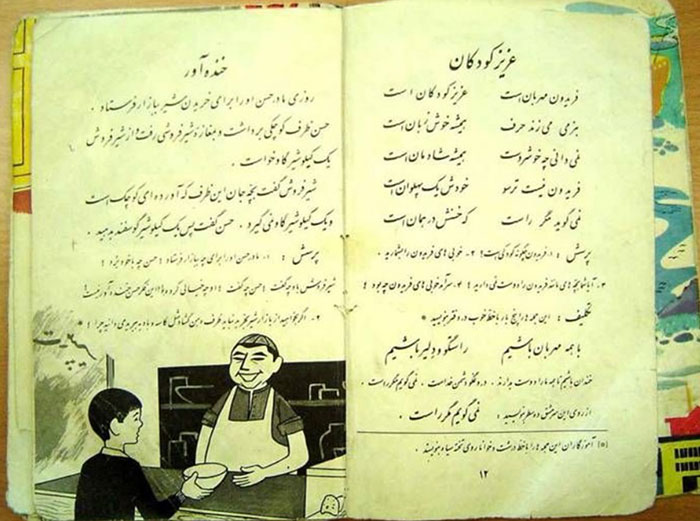 عزیز کودکان
فریدون مهربان است عزیز کودکان است
بنرمی می زند حرف همیشه خوش زبان است
نمی دانی چه خوشروست همیشه شادمان است
فریدون نیست ترسو خودش یک پهلوان است
نمی گوید مگر راست که حسنش در همان است
پرسش : ۱- فریدون چگونه کودکی است؟ ۲- خوبی های فریدون را بشمارید .
۳- آیا شما بچه های مانند فریدون را دوست می دارید؟ ۴- سرآمد خوبی های فریدون چه بود ؟
تکلیف : این جمله ها را پنج بار با خط خوب در دفتر بنویسید *
با همه مهربان باشیم راستگو و دلیر باشیم
خندان باشیم تا همه ما را دوست بدارند . دروغگو دشمن خداست . نمی گویم مگر راست .
از روی این سرمشق دو سطر بنویسید : نمی گویم مگر راست .
(*) آموزگاران این جمله ها را با خط درشت و خوانا روی تخته سیاه بنویسند .
۱۲
خنده آور
روزی مادر حسن او را برای خریدن شیر ببازار فرستاد .
حسن ظرف کوچکی برداشت و بمغازهٔ شیرفروشی رفت و از شیرفروش
یک کیلو شیر گاو خواست .
شیرفروش گفت بچه جان این ظرف که آورده ای کوچک است
و یک کیلو شیر گاو نمی گیرد . حسن گفت پس یک کیلو شیر گوسفند بدهید .
پرسش : ۱- مادر حسن او را برای چه ببازار فرستاد ؟ حسن چه با خود برد ؟
شیرفروش باو چه گفت ؟ حسن چه گفت ؟ او چه خیالی کرده بود؟ این فکر حسن خنده آور نیست؟
۲- اگر بخواهید از بازار شیر بخرید